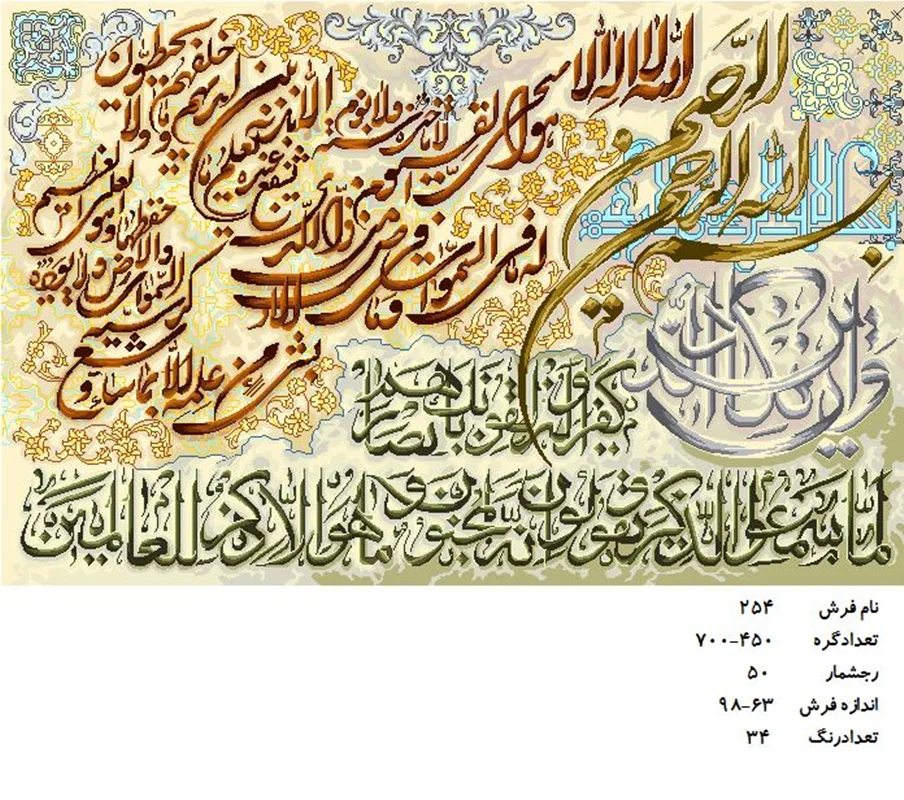 بسم الله الرحمن الرحیم
بسم الله الرحمن الرحیم
الله لا اله الا هو الحی القیوم لا تاخذه سنة ولا نوم
له ما فی السموات وما فی الارض من ذا الذی یشفع عنده الا باذنه
یعلم ما بین ایدیهم وما خلفهم ولا یحیطون
بشیء من علمه الا بما شاء وسع کرسیه السموات والارض ولا یوده حفظهما وهو العلی العظیم
وان یکاد الذین
کفروا لیزلقونک بابصارهم
لما سمعوا الذکر ویقولون انه لمجنون وما هو الا ذکر للعالمین
نام فرش ۲۵۴
تعدادگره ۷۰۰-۴۵۰
رجشمار ۵۰
اندازه فرش ۹۸-۶۳
تعدادرنگ ۳۴